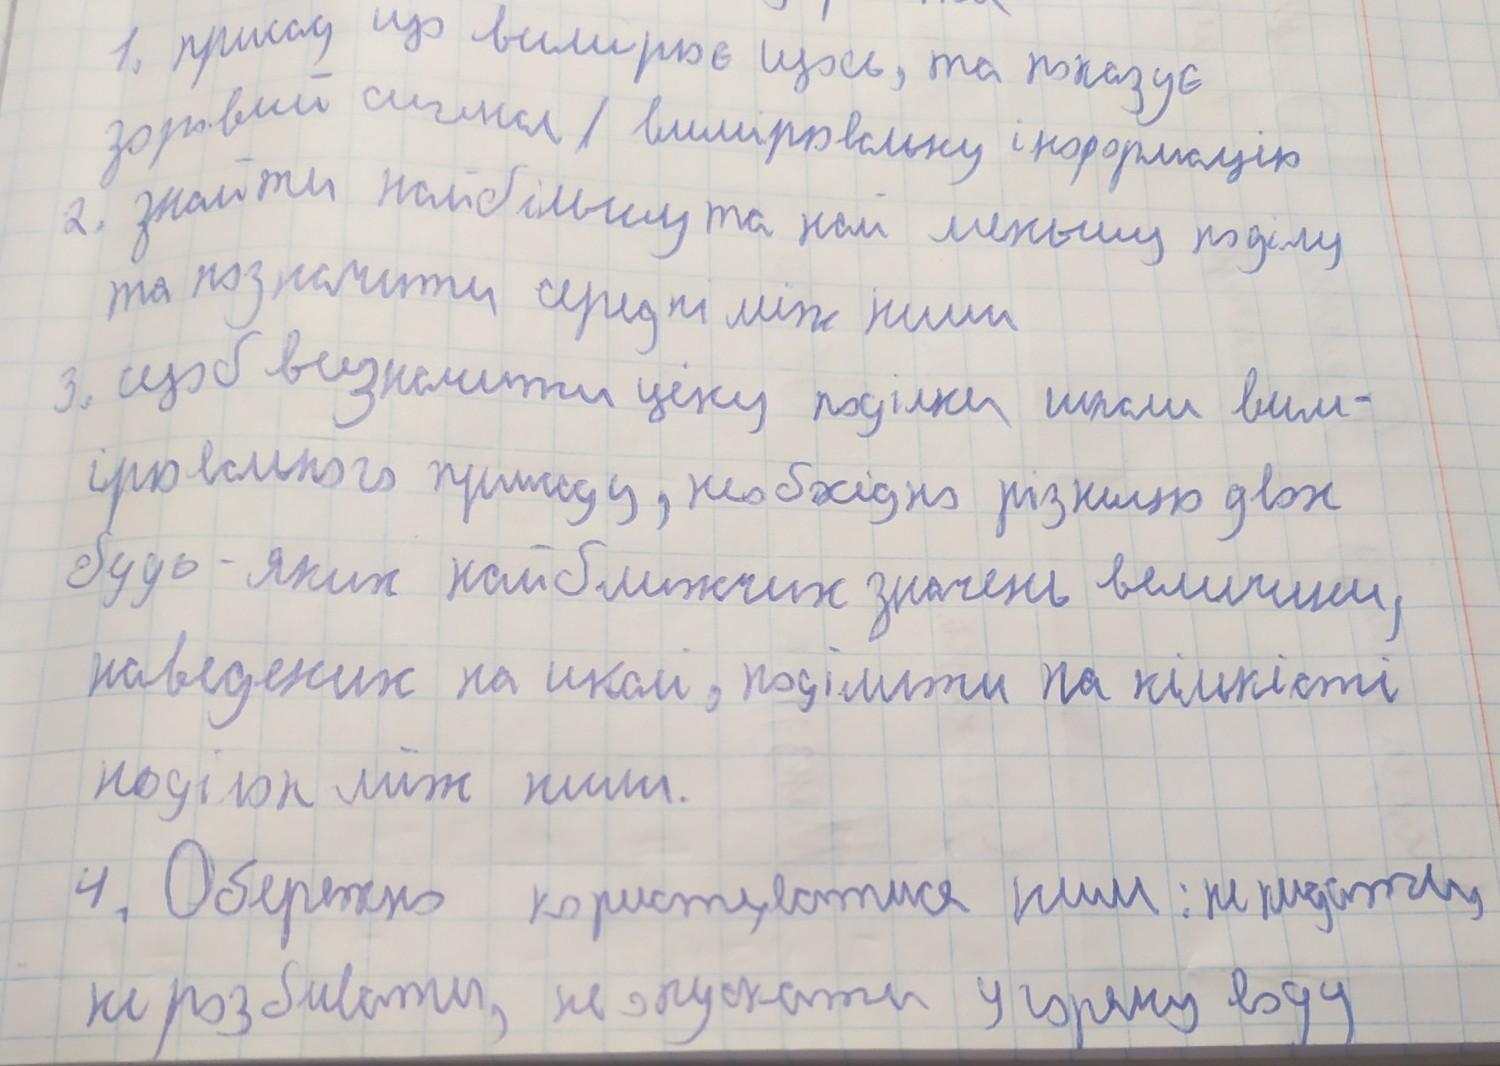 1. прилад що вимирює щось, та показує
зоровий сигнал / вимірювальну інформацію
2. знайти найбільшу та най меньшу поділу
та позначити середні між ними
3. щоб визначити ціну поділки шкали вим-
ірювального приладу, необхідно різницю двох
будь-яких найближчих значень величини,
наведених на шкалі, поділити на кількісті
поділок між ними.
4. Обережно користуватися ним: не кидати,
не розбивати, не опускати у горячу воду